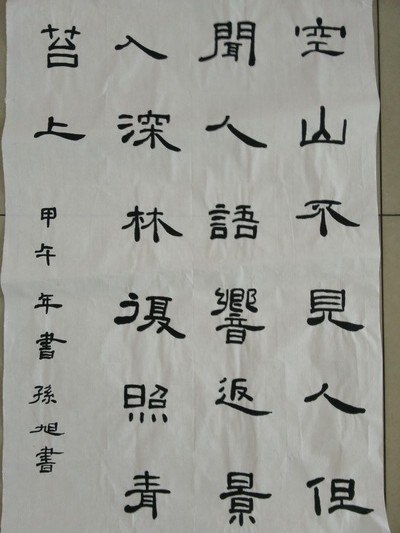 空山不見人但
聞人語響返景
入深林復照青
苔上
甲午年書孫旭書